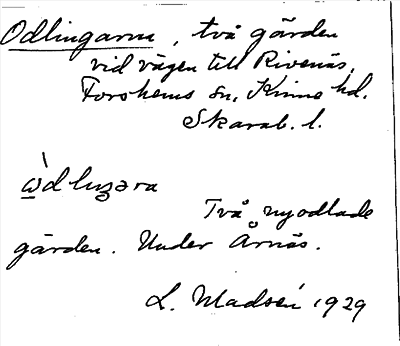 Odlingarna, två gården
vid vägen till Rivenäs,
Forshems sn, Kinne hd.
Skarab. l.
Två nyodlade
gården. Under Årnäs.
L. Madsén 1929